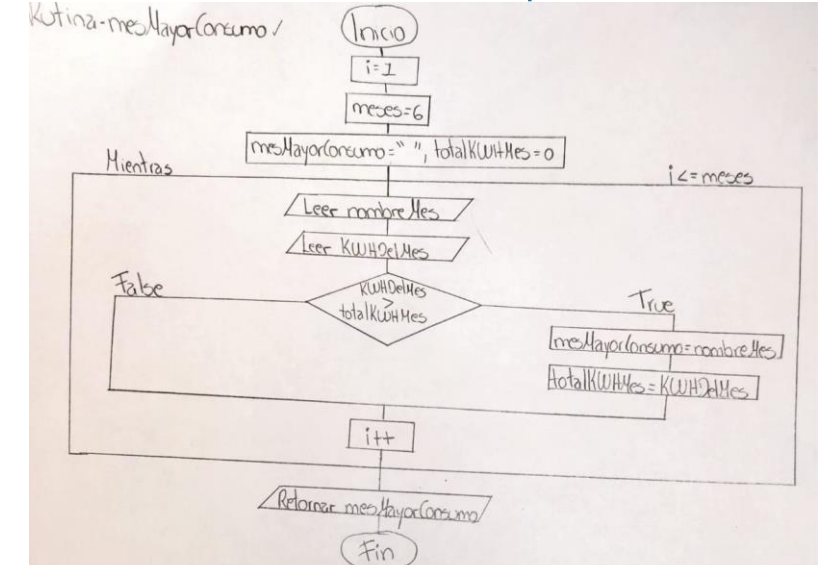 Rutina-mesMayorConsumo
Inicio
i=1
meses=6
mesMayorConsumo=" ", totalKWHMes=0
Mientras
i<=meses
Leer nombreMes
Leer KWHDelMes
KWHDelMes
>
totalKWHMes
False
True
mesMayorConsumo=nombreMes
totalKWHMes=KWHDelMes
i++
Retornar mesMayorConsumo
Fin